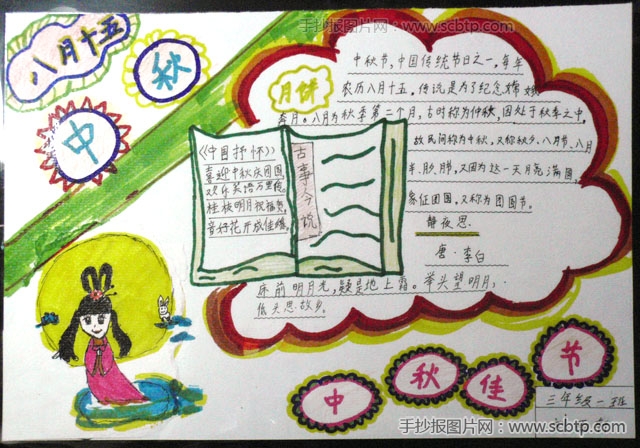 手抄报图片网 - www.scbtp.com
八月十五
中
秋
月饼
中秋节，中国传统节日之一，每年
农历八月十五。传说是为了纪念嫦娥
奔月。八月为秋季第二个月，古时称为仲秋，因处于秋季之中，
故民间称为中秋，又称秋夕、八月节、八月
半、月节，又因为这一天月亮满圆，
象征团圆，又称为团圆节。
静夜思
唐·李白
床前明月光，疑是地上霜。举头望明月，
低头思故乡。
《中国抒怀》
喜迎中秋庆团圆
欢乐笑语万里传
桂枝明月祝福贺
音好花开成佳缘。
古事今说
中
秋
佳
节
三年级一班
手抄报图片网 - www.scbtp.com